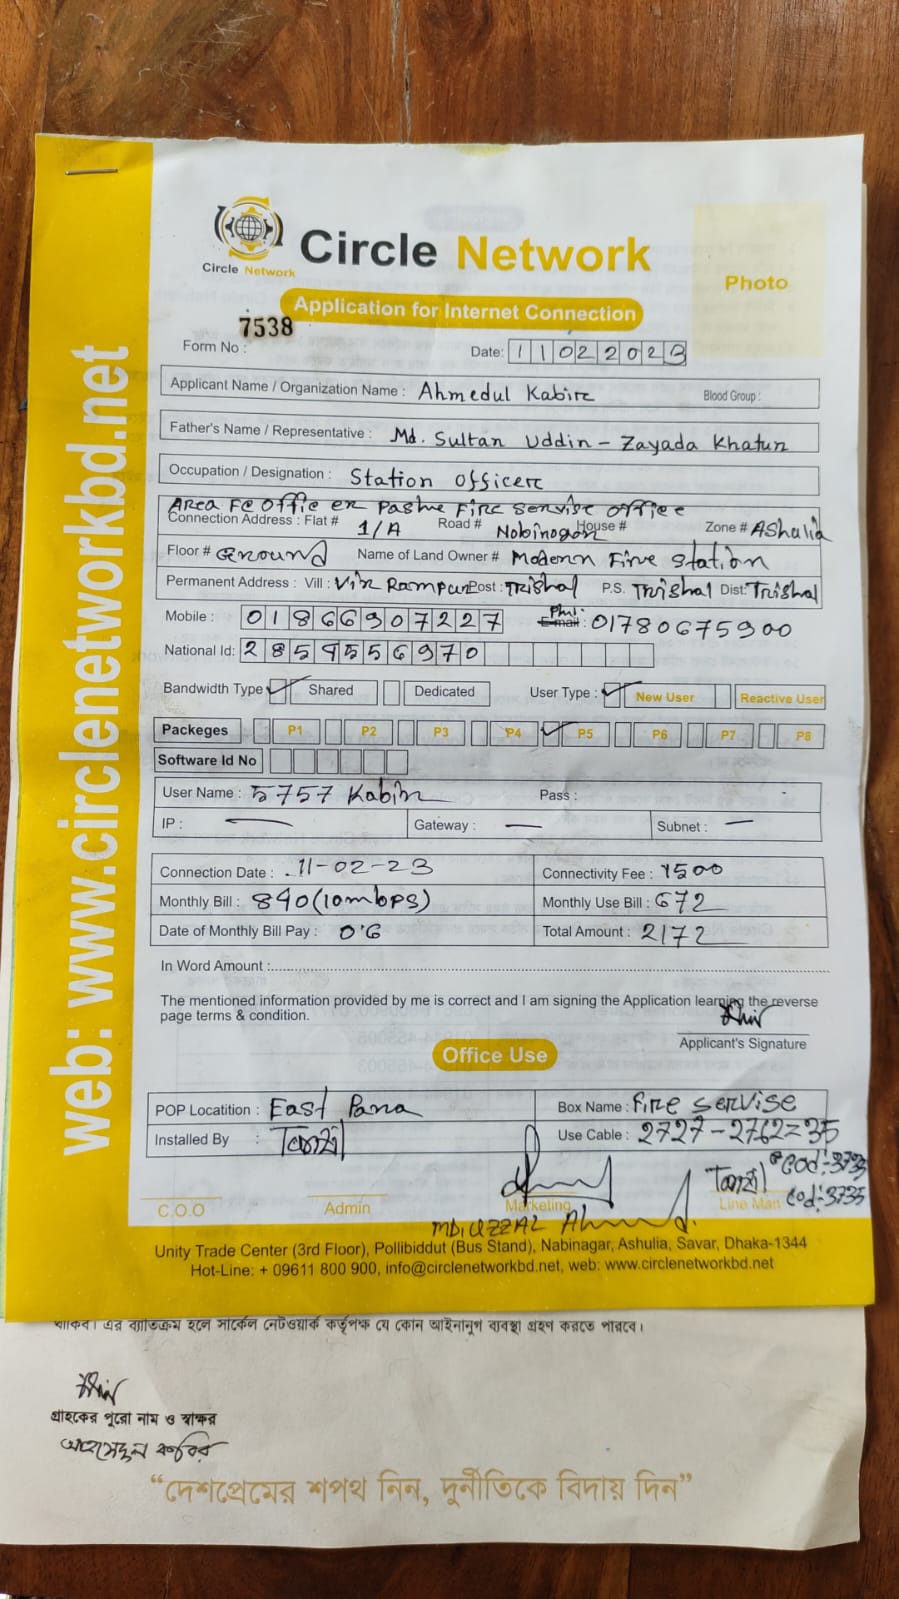 Circle Network
Circle Network
Photo
Application for Internet Connection
Form No : 7538
Date: 11022023
Applicant Name / Organization Name : Ahmedul Kabir
Blood Group :
Father's Name / Representative : Md. Sultan Uddin - Zayada Khatun
Occupation / Designation : Station Officer
Area FC Office er Pashe Fire Servise Office
Connection Address : Flat # 1/A Road # Nobinogor House # Zone # AShalia
Floor # Ground Name of Land Owner # Modern Fire Station
Permanent Address : Vill : Vir Rampur Post : Trishal P.S. Trishal Dist: Trishal
Mobile : 01866907227 Email : 01780675900
National Id: 2859556970
Bandwidth Type Shared Dedicated User Type : New User Reactive User
Packeges P1 P2 P3 P4 P5 P6 P7 P8
Software Id No
User Name : 5757 Kabir Pass :
IP : — Gateway : — Subnet : —
Connection Date : 11-02-23 Connectivity Fee : 1500
Monthly Bill : 840(10mbps) Monthly Use Bill : 672
Date of Monthly Bill Pay : Total Amount : 2172
In Word Amount :
The mentioned information provided by me is correct and I am signing the Application learning the reverse
page terms & condition.
Applicant's Signature
Office Use
POP Locatition : East Pana Box Name : Fire Servise
Installed By : Tanzil Use Cable : 2727-2762=35
Tanzil Cod:-3733
Cod:-3735
C.O.O Admin Marketing Line Man
MD. UZZAL Ahmed
Unity Trade Center (3rd Floor), Pollibiddut (Bus Stand), Nabinagar, Ashulia, Savar, Dhaka-1344
Hot-Line: + 09611 800 900, info@circlenetworkbd.net, web: www.circlenetworkbd.net
web: www.circlenetworkbd.net
থাকিব। এর ব্যতিক্রম হলে সার্কেল নেটওয়ার্ক কর্তৃপক্ষ যে কোন আইনানুগ ব্যবস্থা গ্রহণ করতে পারবে।
গ্রাহকের পুরো নাম ও স্বাক্ষর
আহমেদুল কবির
“দেশপ্রেমের শপথ নিন, দুর্নীতিকে বিদায় দিন”